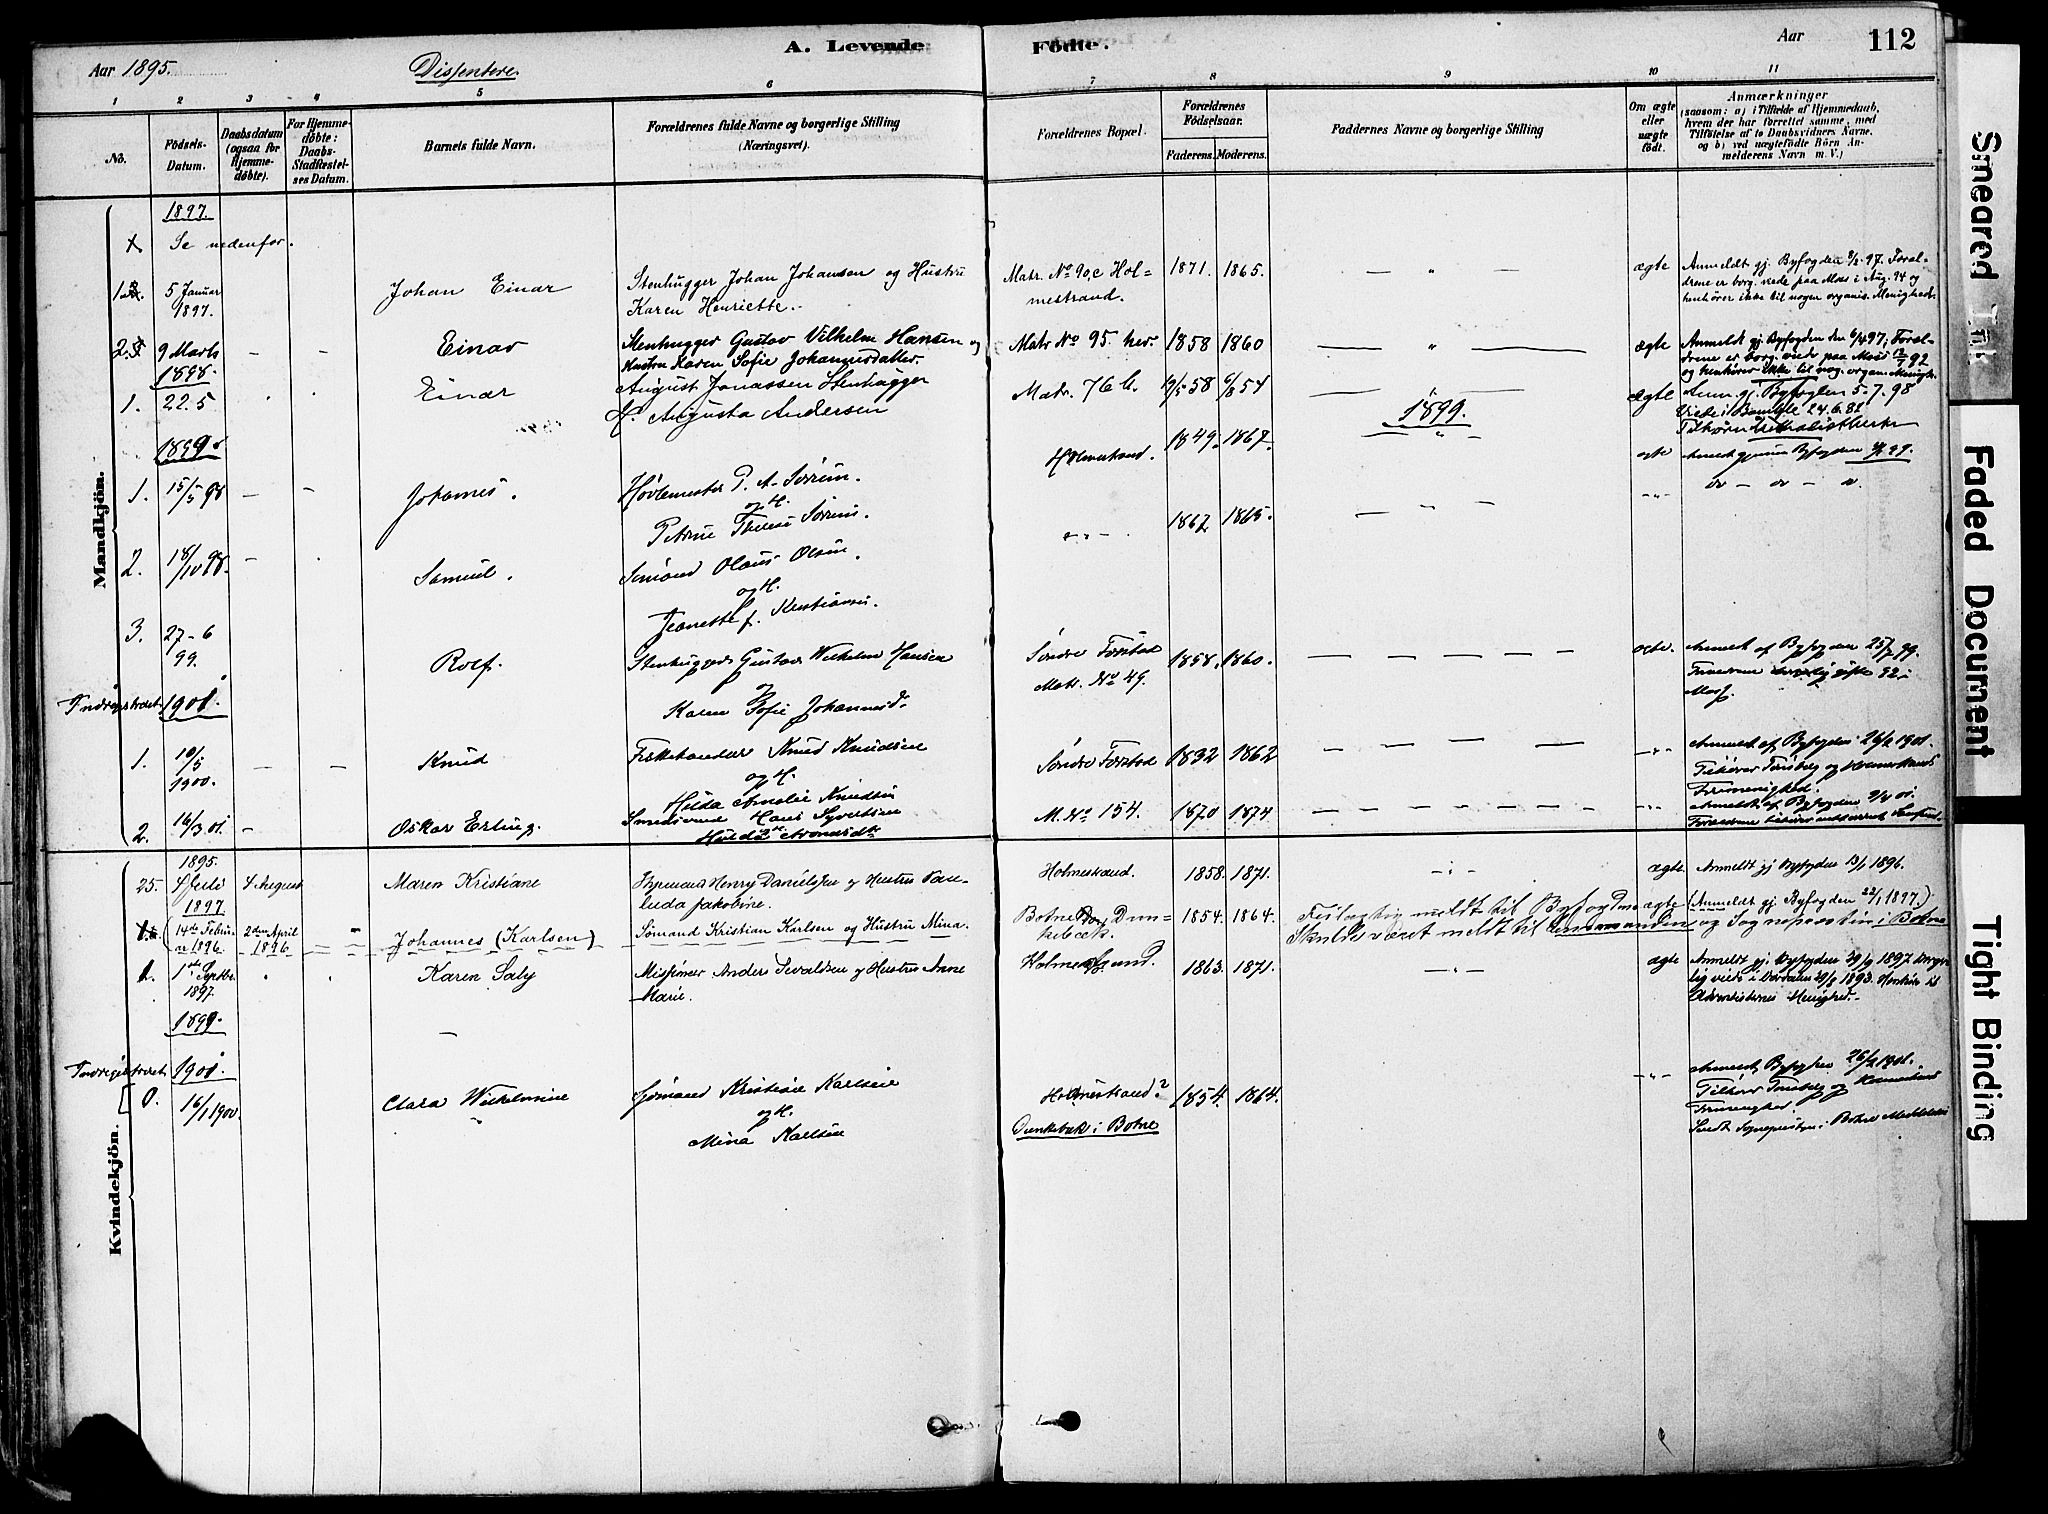 A. Levende Födte.
Aar
112
Aar 1895.
Dissentere
1 2 3 4 5 6 7 8 9 10 11
No.
Födsels-
Datum.
Daabsdatum
(ogsaa for
Hjemme-
døbte).
For Hjemme-
døbte:
Daabs-
Stadfæstel-
ses Datum.
Barnets fulde Navn.
Forældrenes fulde Navne og borgerlige Stilling
(Næringsvei).
Forældrenes Bopæl.
Forældrenes
Födselsaar.
Faderens. Moderens.
Faddernes Navne og borgerlige Stilling
Om ægte
eller
uægte
födt.
Anmærkninger
(saasom: a) i Tilfælde af Hjemmedaab,
hvem der har forrettet samme, med
Tilføielse af to Daabsvidners Navne,
og b) ved uægtefödte Börn An-
melderens Navn m. V.)
Mandkjön.
1897.
Se nedenfor.
5 Januar
1897.
Johan Einar
Stenhugger Johan Johansen og Hustru
Karen Henriette.
Matr. No 90,c Hol-
mestrand.
1871. 1865.
ægte
Anmeldt gj. Byfogden 97. Foræl-
drene er borg. viede paa Moss i Aug. 94 og
henhører ikke til nogen organis. Menighed.
9 Marts
Einar
Stenhugger Gustav Vilhelm Hansen og
Hustru Karen Sofie Johannesdatter.
Matr No 95. her.
1858 1860
ægte
Anmeldt gj. Byfogden den 6/4 97; Foræl-
drene er borg. viede paa Moss 92
og henhører ikke til nog. organ. Menigh.
1898.
1. 22.5
Einar
August Jonassen Stenhugger
H. Augusta Andersen
Matr. 76 b.
19/5 58 54
ægte
Anm. gj. Byfogden 5-7.98
Viede i Bamble 24.6.82
1899.
1899.
1. 15/5 98
Johannes.
Høvlemester P. A. Sørum.
og H.
Petrine Therese Sørum.
Holmestrand.
1849. 1867.
ægte
Anmeldt gjennem Byfogden 99.
2. 18/10 98.
Samuel.
Sømand Olaus Olsen.
og H.
Jeanette f. Kristiansen.
1867 1865.
3. 27-6
99.
Rolf.
Stenhugger Gustav Wilhelm Hansen
og
Karen Sofie Johannesd.
Søndre Forstad
Matr. No 49.
1858. 1860.
ægte.
Anmeldt af Byfogden 25/7 99.
Forældrene borgerlig gifte 92 i
Moss.
Indregistreret 1901.
1. 10/5
1900.
Knud
Fiskehandler Knud Knudsen
og H.
Hilda Amalie Knudsen
Søndre Forstad
1832 1862
Anmeldt af Byfogden 26/2 1901.
Tilhører Tønsberg og Holmestrands
Frimenighed.
2. 16/3 01.
Oskar Erling.
Smedsvend Hans Syvertsen
Hulda Aronsdtr
M. No 154.
1870 1874
Anmeldt af Byfogden 01.
Kvindekjön.
1895.
25.
4 August
Maren Kristiane
Styrmand Henry Danielsen og Hustru Pau-
lida Jakobine.
Holmestrand.
1858. 1871.
ægte
Anmeldt gj Byfogden 13/1 1896.
1897.
14de Febru-
ar 1896.
2den April
1896
Johannes (Karlsen)
Sømand Kristian Karlsen og Hustru Mina.
Botne Dun-
kebæk.
1854. 1864.
Feilagtig meldt til Byfogden
Skulde været meldt til Lensmanden og Sognepresten i Botne
ægte
(Anmeldt gj Byfogden 22/1 1897.)
1. 1ste Septbr.
1897.
Karen Saly
Missionær Anders Sevaldsen og Hustru Anne
Marie.
Holmestrand.
1863. 1871.
ægte
Anmeldt gj. Byfogden 29/9 1897. Borger-
lig viede i Værdalen 29/8 1893. Henhører til
Adventisternes Menighed.
1899.
—
Indregistreret 1901.
0. 16/1 1900.
Clara Wilhelmine
Sømand Kristian Karlsen
og H.
Mina Karlsen
Holmestrand?
Dunkebæk i Botne
1854. 1864.
Anmeldt Byfogden 26/2 1901.
Tilhører Tønsberg og Holmestrand
Frimenighed
Sendt Sognepresten i Botne Meddelelse
Smeared Ink
Faded Document
Tight Binding